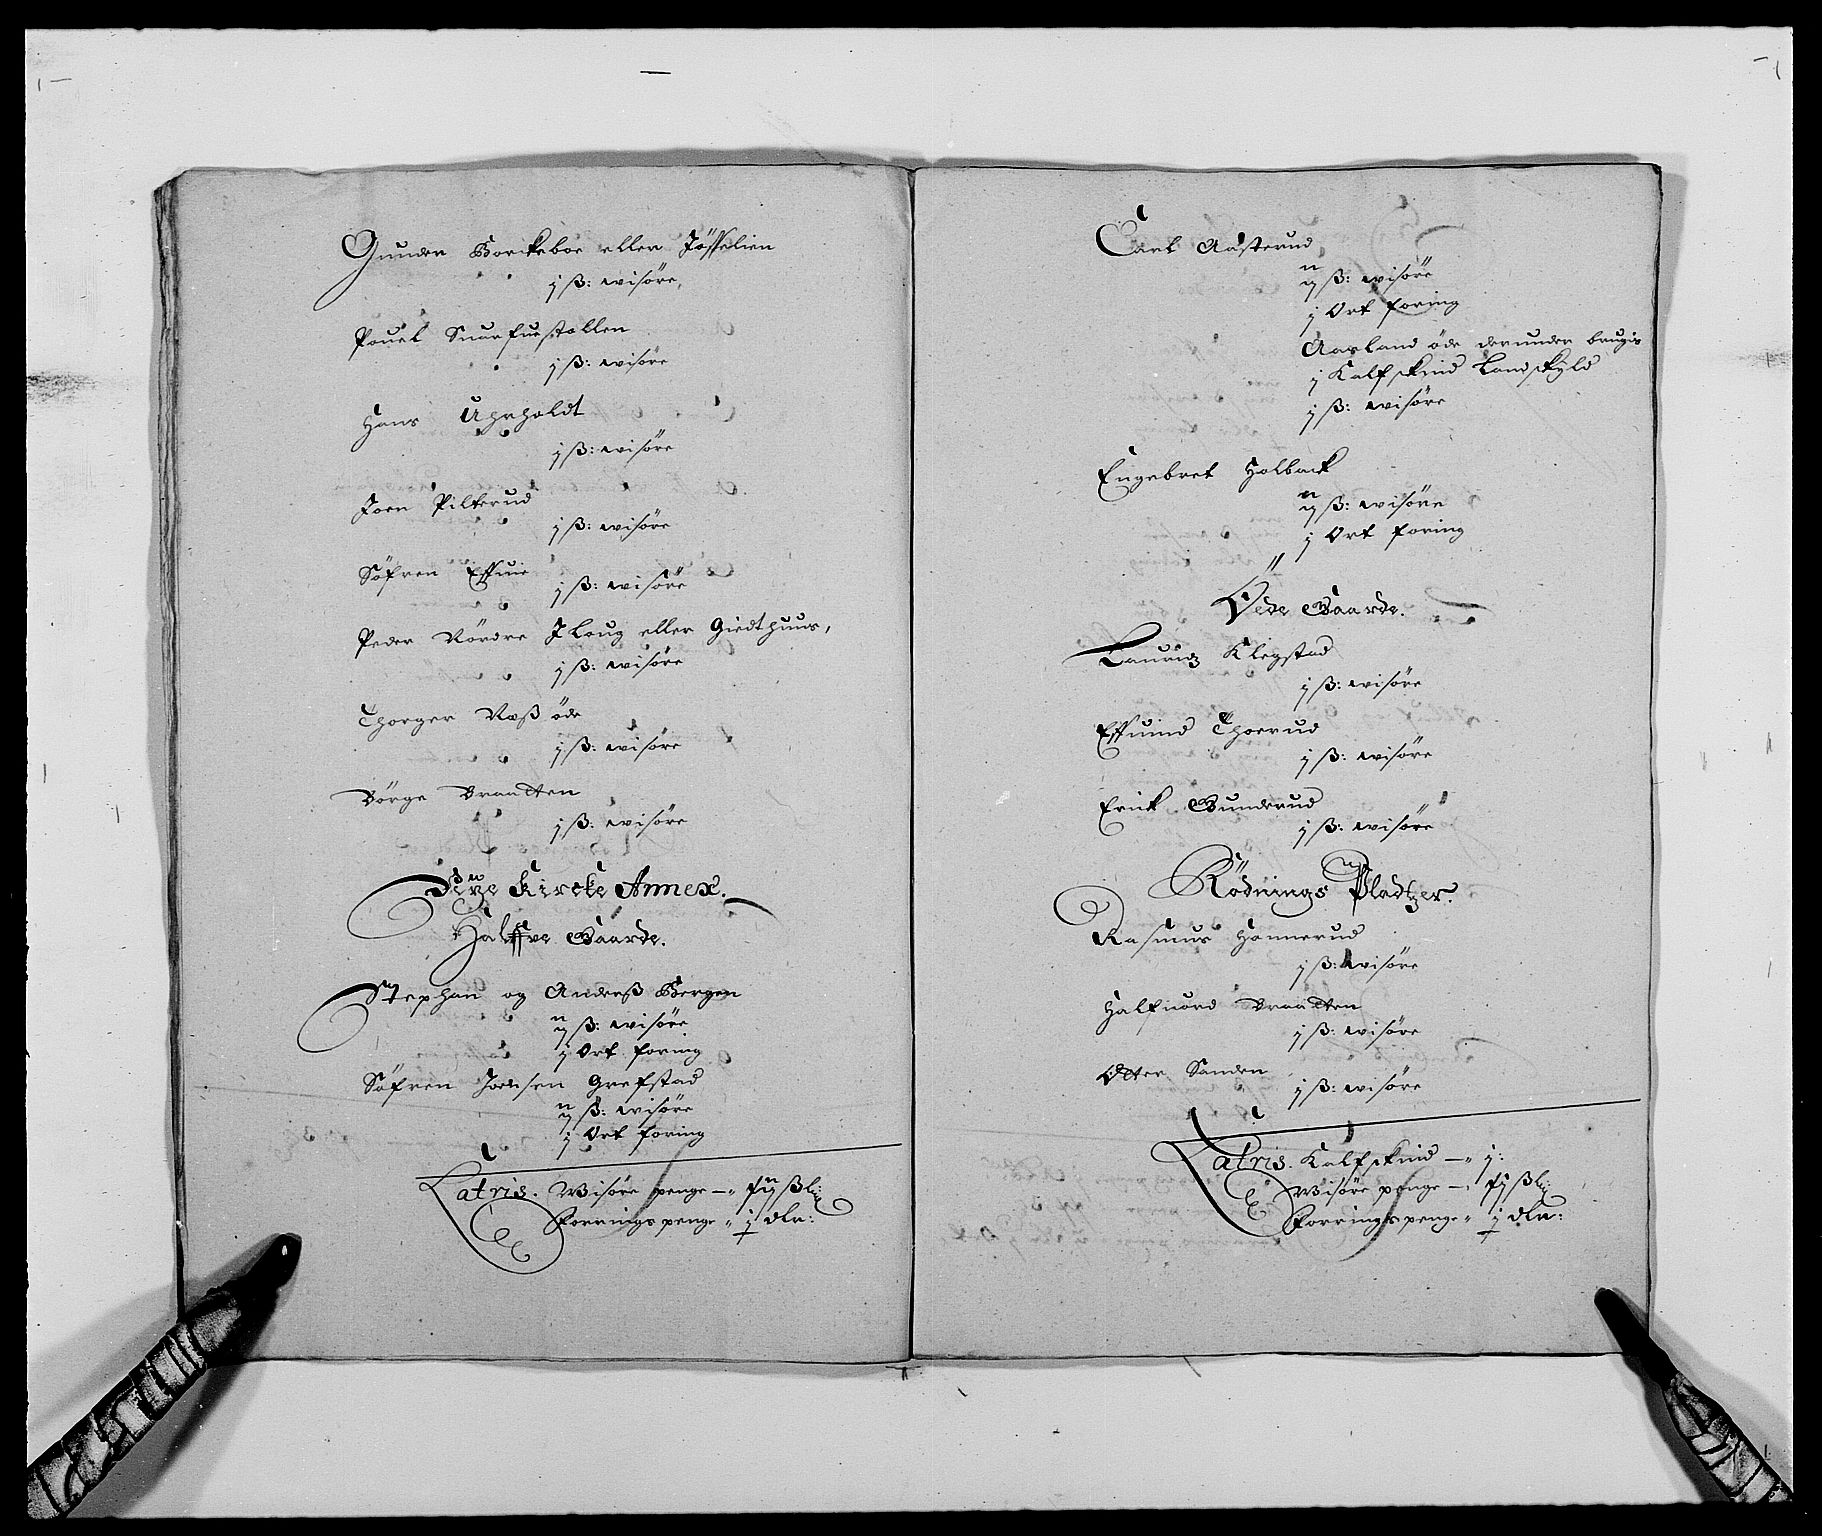 Gunder Borckeboe eller Jösselien
j ß: wisöre,
Pouel Snarfuestallen
j ß: wisöre
Hans Uhrholdt
j ß: wisöre
Joen Pilterud
j ß: wisöre
Söfren Effuie
j ß: wisöre
Peder Nördre Jloug eller Giedthuus,
j ß: wisöre
Thorger Næß öde
j ß: wisöre
Börge Braatten
j ß: wisöre
Kircke Annex.
Halffve Gaarde.
Stephan og Anderß Bergen
ij ß: wisöre
j Ort foring
Söfren Joensen Grefstad
ij ß: wisöre
j Ort foring
Latris. Wisöre penge —„ ßl:
Forrings penge „ j dlr:
Carl Aasterud
ij ß: wisöre
j Ort foring
Aasland öde derunder brugis
j Kalfskind Landskyld
j ß: wisöre
Engebret Holback
ij ß: wisöre
j Ort foring
Öede Gaarde.
Lauridz Klegstad
j ß: wisöre
Effuind Thorrud
j ß: wisöre
Erick Gunderud
j ß: wisöre
Rödnings Pladtzer.
Rasmus Hannerud
j ß: wisöre
Halfuord Braatten
j ß: wisöre
Otter Sanden
j ß: wisöre
Latris. Kalfskind —„ j:
Wisöre penge —„ ßl:
Forrings penge „ j dlr: